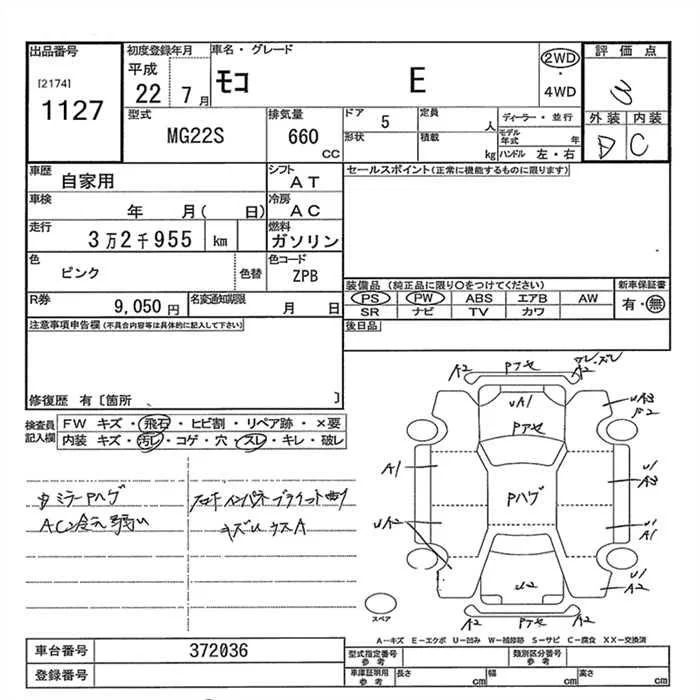 出品番号 初度登録年月 車名・グレード 評価点
[2174] 平成 モコ E 2WD ・ 4WD
1127 22 7月 外装 内装
D C
型式 排気量 ドア 5 定員 人 ディーラー・並行
MG22S 660 CC 形状 積載 kg モデル年式 年
ハンドル 左・右
車歴 自家用 シフト AT セールスポイント(正常に機能するものに限ります)
車検 年 月( 日) 冷房 AC
走行 3万2千955 km 燃料 ガソリン
色 ピンク 色替 色コード ZPB
装備品 (純正品に限り○をつけてください) 新車保証書
R券 9,050円 名変通知期限 月 日 PS PW ABS エアB AW 有・無
SR ナビ TV カワ
注意事項申告欄(不具合内容等は具体的に記入して下さい) 後日品
修復歴 有〔箇所 〕
検査員記入欄 FW キズ・飛石・ヒビ割・リペア跡・×要
内装 キズ・汚レ・コゲ・穴・スレ・キレ・破レ
A2 Pアセ A2
UA1
Pアセ
A1 Pハゲ U1
A3
UA2 U1
A1
U2 U1
A2
A2 Pアセ A2
ミラーPハゲ
キズU ウスA
スペア
A―キズ E―エクボ U―凹み W―補修跡 S―サビ C―腐食 XX―交換済
車台番号 372036 型式指定番号 参考 類別区分番号 参考
登録番号 車庫証明用 参考 長さ cm 幅 cm 高さ cm